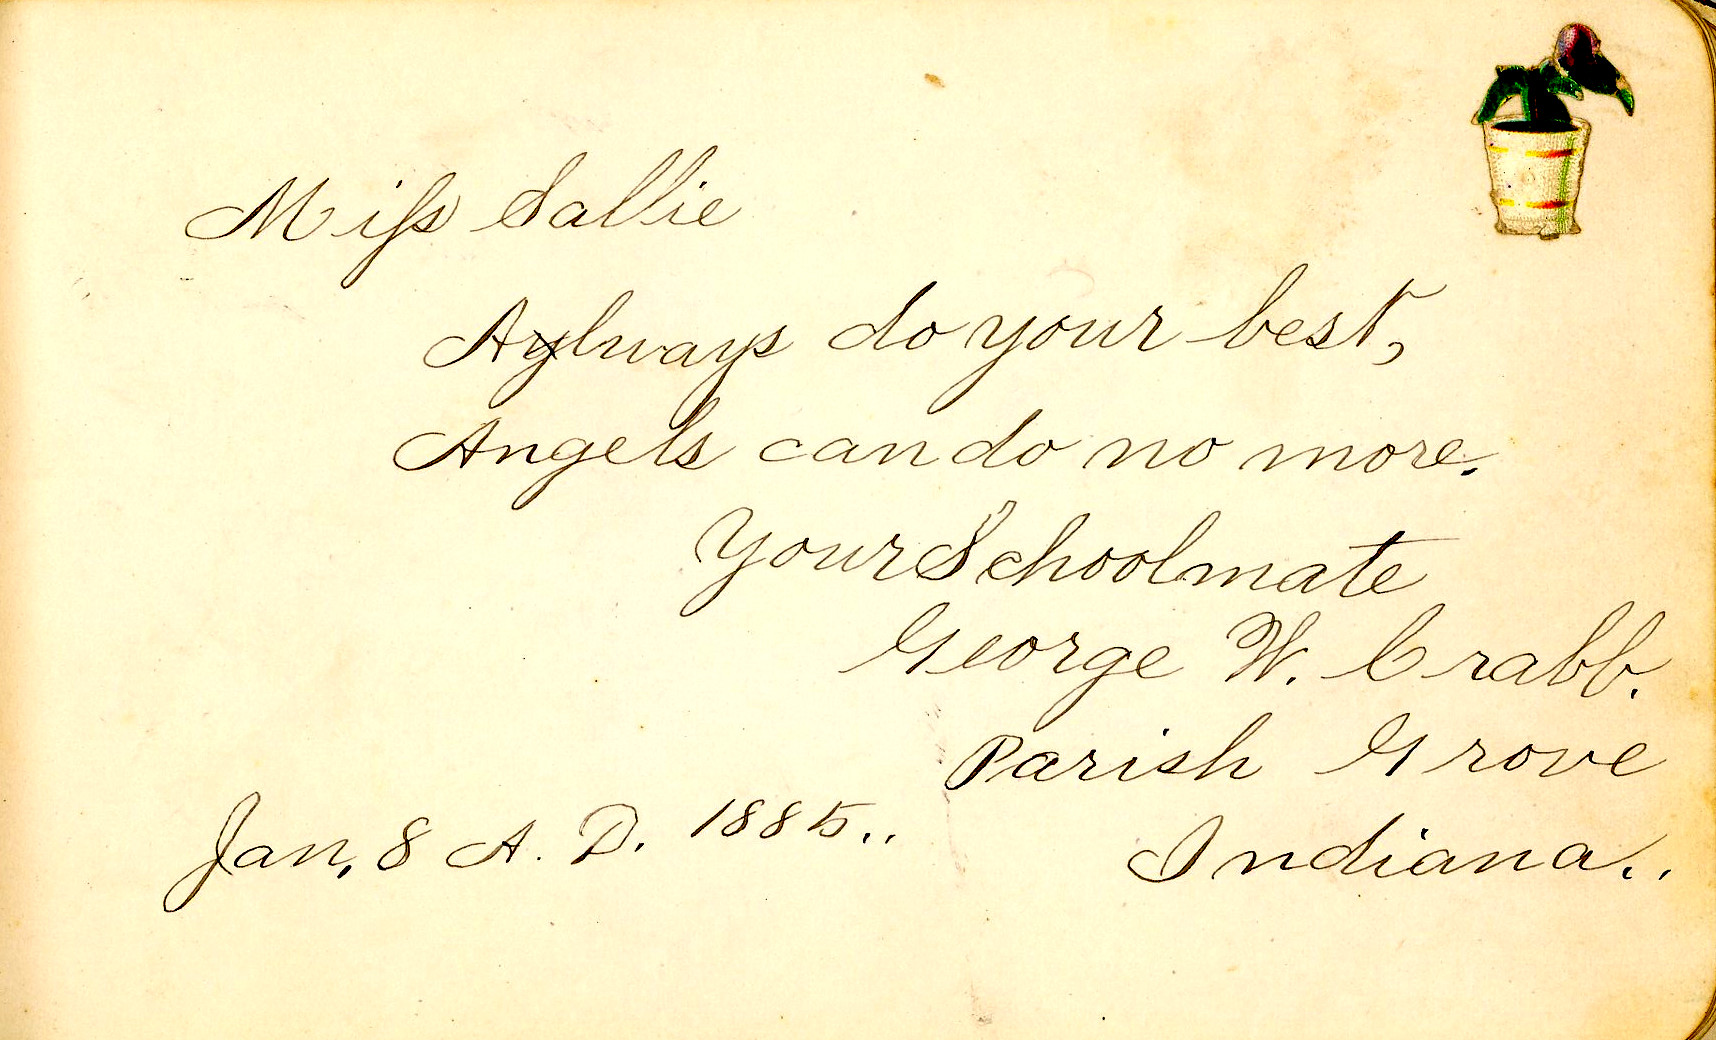 Miſs Sallie
Always do your best,
Angels can do no more.
Your Schoolmate
George W. Crabb.
Parish Grove
Jan, 8 A. D. 1885..
Indiana..